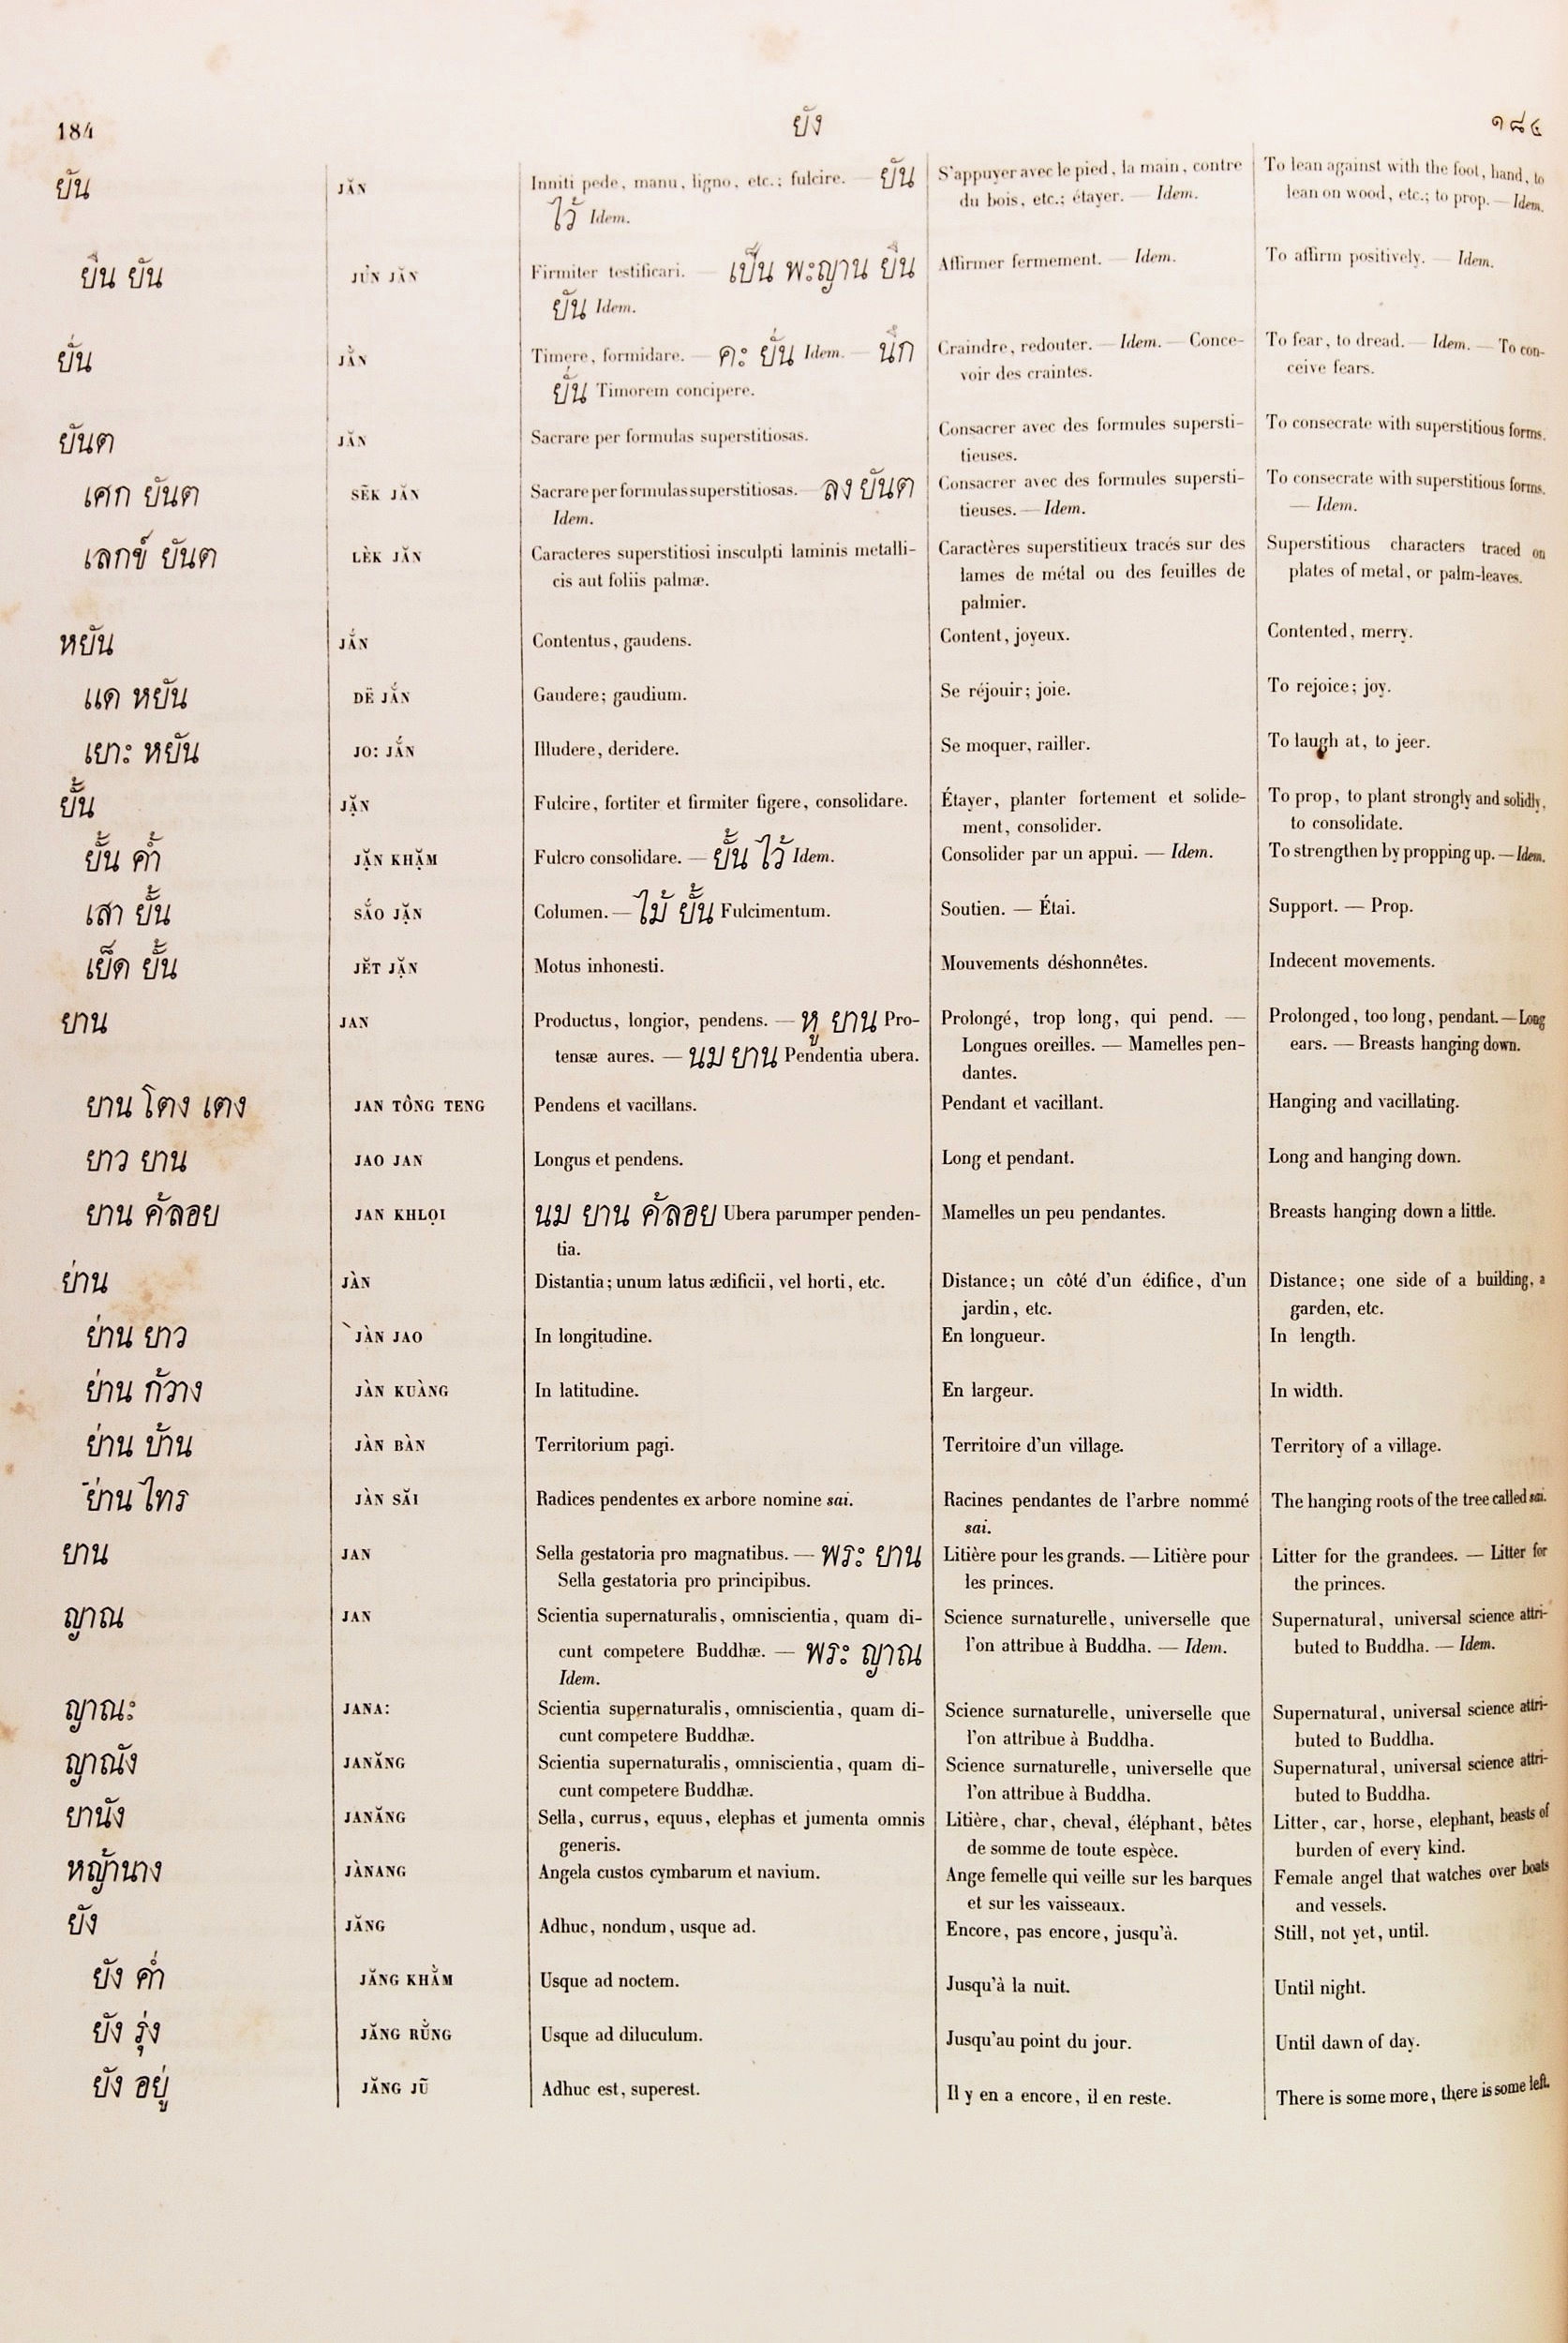 184 ยัง ๑๘๔
ยัน JĂN Inniti pede, manu, ligno, etc.; fulcire. — ยัน S'appuyer avec le pied, la main, contre To lean against with the foot, hand, to
ไว้ Idem. du bois, etc.; étayer. — Idem. lean on wood, etc.; to prop. — Idem.
ยืน ยัน JŬN JĂN Firmiter testificari. — เป็น พะญาน ยืน Affirmer fermement. — Idem. To affirm positively. — Idem.
ยัน Idem.
ยั่น JẰN Timere, formidare. — คะ ยั่น Idem. — นึก Craindre, redouter. — Idem. — Conce- To fear, to dread. — Idem. — To con-
ยั่น Timorem concipere. voir des craintes. ceive fears.
ยันต JĂN Sacrare per formulas superstitiosas. Consacrer avec des formules supersti- To consecrate with superstitious forms.
tieuses.
เศก ยันต SĔK JĂN Sacrare per formulas superstitiosas. ลง ยันต Consacrer avec des formules supersti- To consecrate with superstitious forms.
Idem. tieuses. — Idem. — Idem.
เลกข์ ยันต LÈK JĂN Caracteres superstitiosi insculpti laminis metalli- Caractères superstitieux tracés sur des Superstitious characters traced on
cis aut foliis palmæ. lames de métal ou des feuilles de plates of metal, or palm-leaves.
palmier.
หยัน JẮN Contentus, gaudens. Content, joyeux. Contented, merry.
แด หยัน DË JẮN Gaudere; gaudium. Se réjouir; joie. To rejoice; joy.
เยาะ หยัน JO: JẮN Illudere, deridere. Se moquer, railler. To laugh at, to jeer.
ยั้น JẶN Fulcire, fortiter et firmiter figere, consolidare. Étayer, planter fortement et solide- To prop, to plant strongly and solidly,
ment, consolider. to consolidate.
ยั้น ค้ำ JẶN KHẶM Fulcro consolidare. — ยั้น ไว้ Idem. Consolider par un appui. — Idem. To strengthen by propping up. — Idem.
เสา ยั้น SẮO JẶN Columen. — ไม้ ยั้น Fulcimentum. Soutien. — Étai. Support. — Prop.
เย็ด ยั้น JĔT JẶN Motus inhonesti. Mouvements déshonnêtes. Indecent movements.
ยาน JAN Productus, longior, pendens. — หู ยาน Pro- Prolongé, trop long, qui pend. — Prolonged, too long, pendant. — Long
tensæ aures. — นม ยาน Pendentia ubera. Longues oreilles. — Mamelles pen- ears. — Breasts hanging down.
dantes.
ยาน โตง เตง JAN TÔNG TENG Pendens et vacillans. Pendant et vacillant. Hanging and vacillating.
ยาว ยาน JAO JAN Longus et pendens. Long et pendant. Long and hanging down.
ยาน ค้ลอย JAN KHLỌI นม ยาน ค้ลอย Ubera parumper penden- Mamelles un peu pendantes. Breasts hanging down a little.
tia.
ย่าน JÀN Distantia; unum latus ædificii, vel horti, etc. Distance; un côté d'un édifice, d'un Distance; one side of a building, a
jardin, etc. garden, etc.
ย่าน ยาว JÀN JAO In longitudine. En longueur. In length.
ย่าน ก้วาง JÀN KUÀNG In latitudine. En largeur. In width.
ย่าน บ้าน JÀN BÀN Territorium pagi. Territoire d'un village. Territory of a village.
ย่าน ไทร JÀN SĂI Radices pendentes ex arbore nomine sai. Racines pendantes de l'arbre nommé The hanging roots of the tree called sai.
sai.
ยาน JAN Sella gestatoria pro magnatibus. — พระ ยาน Litière pour les grands. — Litière pour Litter for the grandees. — Litter for
Sella gestatoria pro principibus. les princes. the princes.
ญาณ JAN Scientia supernaturalis, omniscientia, quam di- Science surnaturelle, universelle que Supernatural, universal science attri-
cunt competere Buddhæ. — พระ ญาณ l'on attribue à Buddha. — Idem. buted to Buddha. — Idem.
Idem.
ญาณะ JANA: Scientia supernaturalis, omniscientia, quam di- Science surnaturelle, universelle que Supernatural, universal science attri-
cunt competere Buddhæ. l'on attribue à Buddha. buted to Buddha.
ญาณัง JANĂNG Scientia supernaturalis, omniscientia, quam di- Science surnaturelle, universelle que Supernatural, universal science attri-
cunt competere Buddhæ. l'on attribue à Buddha. buted to Buddha.
ยานัง JANĂNG Sella, currus, equus, elephas et jumenta omnis Litière, char, cheval, éléphant, bêtes Litter, car, horse, elephant, beasts of
generis. de somme de toute espèce. burden of every kind.
หญ้านาง JÀNANG Angela custos cymbarum et navium. Ange femelle qui veille sur les barques Female angel that watches over boats
et sur les vaisseaux. and vessels.
ยัง JĂNG Adhuc, nondum, usque ad. Encore, pas encore, jusqu'à. Still, not yet, until.
ยัง ค่ำ JĂNG KHẰM Usque ad noctem. Jusqu'à la nuit. Until night.
ยัง รุ่ง JĂNG RŬ̀NG Usque ad diluculum. Jusqu'au point du jour. Until dawn of day.
ยัง อยู่ JĂNG JŨ Adhuc est, superest. Il y en a encore, il en reste. There is some more, there is some left.